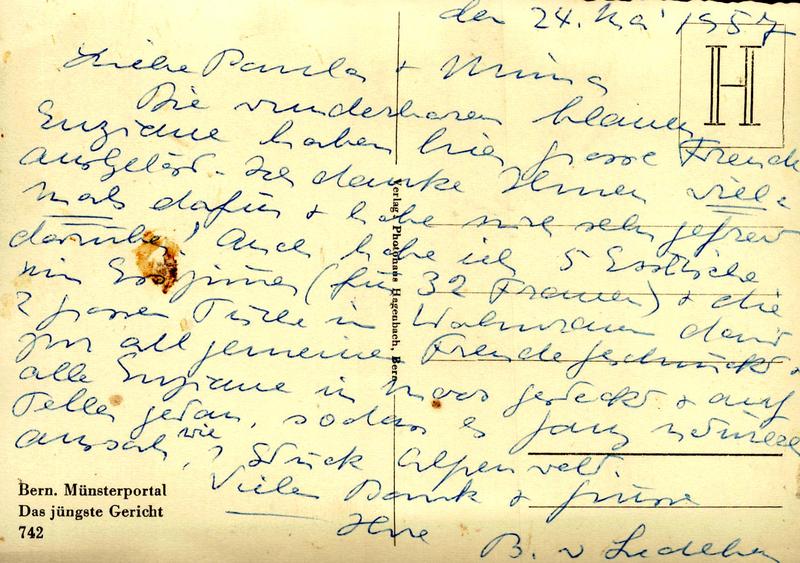 den 24. Mai 1957
H
Liebe Paula + Minna
Die wunderbaren blauen
Enziane haben hier grosse Freude
ausgelöst. Ich danke Ihnen viel-
mals dafür + habe mich sehr gefreut
darüber! Auch habe ich 5 Esstische
im Esszimmer (für 32 Frauen) + die
2 grossen Tische im Wohnraum damit
zur allgemeinen Freude geschmückt +
alle Enziane in Moos gesteckt + auf
Teller getan, sodass es ganz natürlich
aussah, wie 1 Stück Alpenwelt.
Vielen Dank + Grüsse
Ihre
B. v
Verlag: Photohaus Hagenbach, Bern
Bern. Münsterportal
Das jüngste Gericht
742